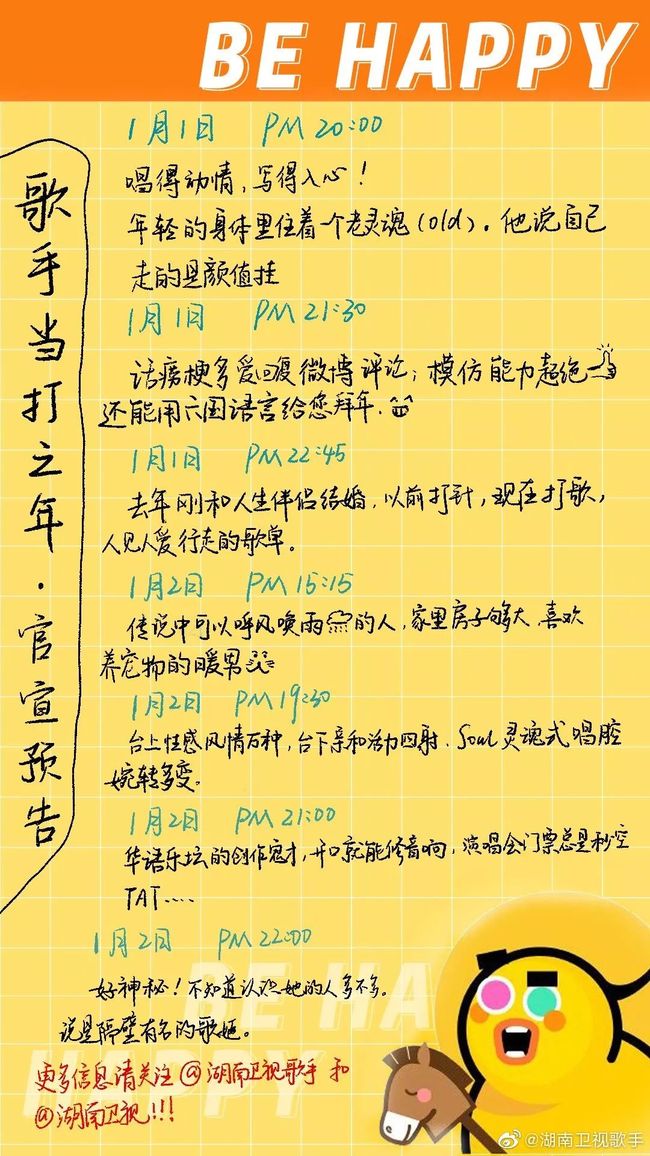 BE HAPPY
歌手当打之年·官宣预告
1月1日 PM 20:00
唱得动情，写得入心！
年轻的身体里住着一个老灵魂(old)。他说自己
走的是颜值挂
1月1日 PM 21:30
话痨梗多爱回复微博评论；模仿能力超绝
还能用六国语言给您拜年.
1月1日 PM 22:45
去年刚和人生伴侣结婚，以前打针，现在打歌，
人见人爱行走的歌单。
1月2日 PM 15:15
传说中可以呼风唤雨的人，家里房子够大.喜欢
养宠物的暖男
1月2日 PM 19:30
台上性感风情万种，台下亲和活力四射.Soul灵魂式唱腔
婉转多变。
1月2日 PM 21:00
华语乐坛的创作鬼才，开口就能修音响，演唱会门票总是秒空
TAT....
1月2日 PM 22:00
好神秘！不知道认识她的人多不多。
说是隔壁有名的歌姬。
更多信息请关注@湖南卫视歌手 和
@湖南卫视!!!
BE HA
HAPPY
@湖南卫视歌手